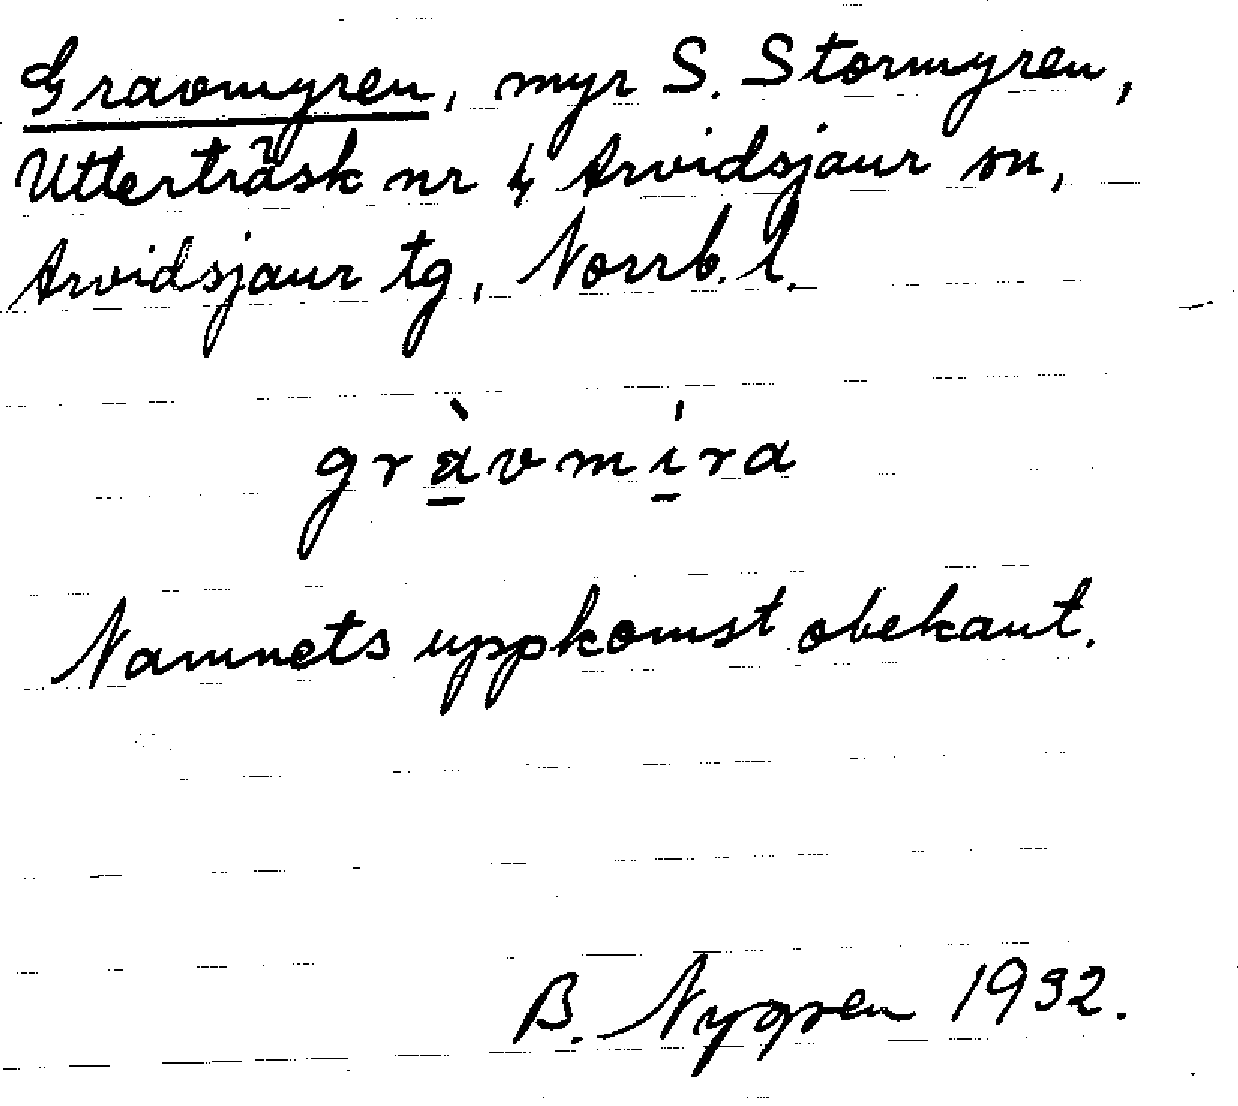 Gravmyren, myr S. Stormyren,
Utterträsk nr 4 Arvidsjaur sn,
Arvidsjaur tg, Norrb. l.
gràvmíra
Namnets uppkomst obekant.
B. Nygren 1932.